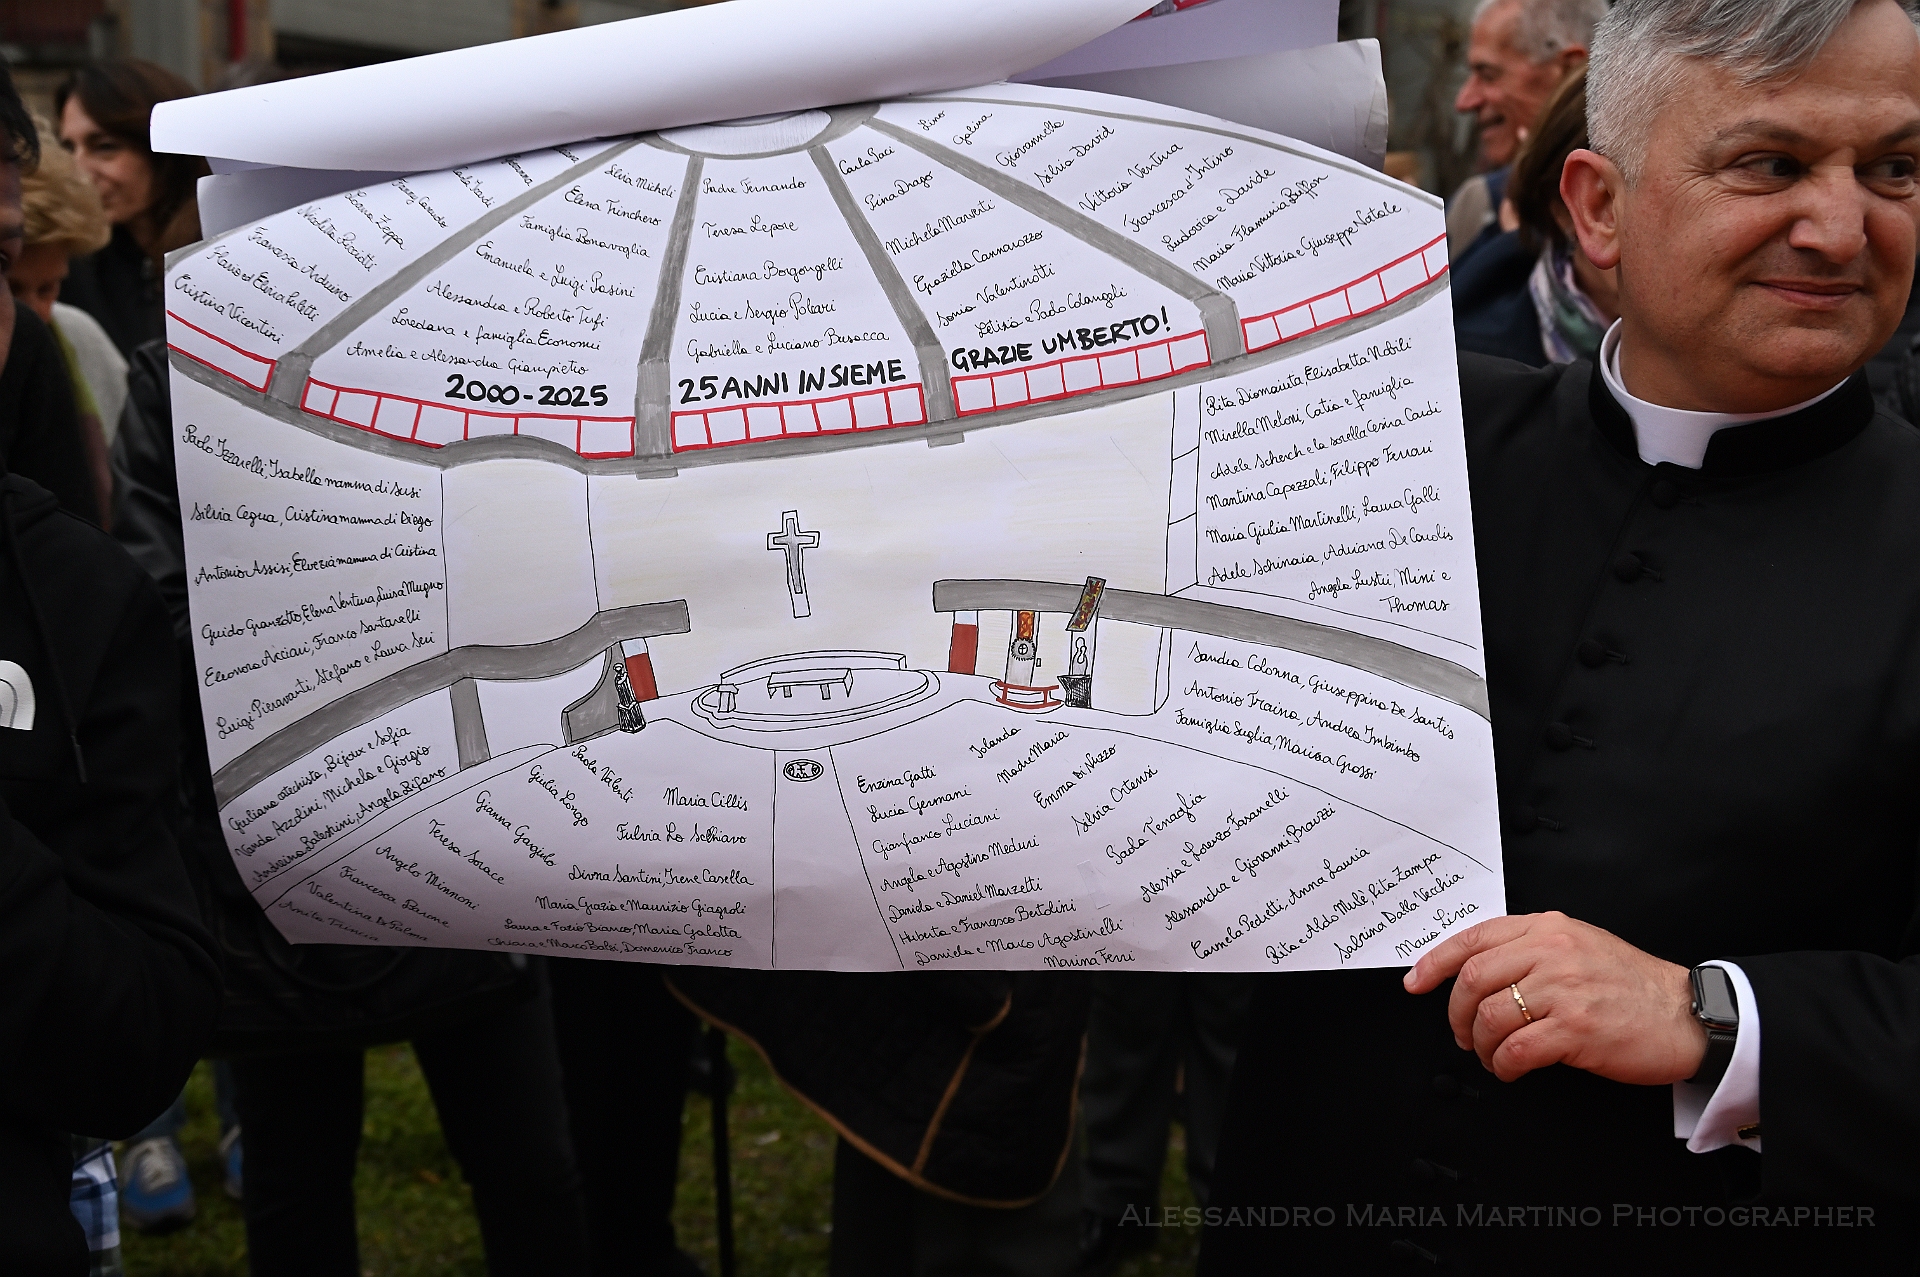 Cristina Vicentini
Francesca Arduino
Nicoletta Ricciatti
Silvia Micheli
Elena Trinchero
Famiglia Bonavoglia
Emanuela e Luigi Pasini
Alessandra e Roberto Tufi
Loredana e famiglia Economi
Amelia e Alessandra Giampietro
2000-2025
Padre Fernando
Teresa Lepore
Cristiana Borgongelli
Lucia e Sergio Polcari
Gabriella e Luciano Busacca
25 ANNI INSIEME
Carla Paci
Pina Drago
Michela Marverti
Graziella Cannarozzo
Sonia Valentinotti
Letizia e Paolo Colangeli
GRAZIE UMBERTO!
Lino
Galina
Giovannella
Silvia David
Vittoria Ventura
Francesca d'Intino
Ludovica e Davide
Maria Flamminia Buffon
Maria Vittoria e Giuseppe Natale
Paolo Izzarelli, Isabella mamma di Susi
Silvia Cegna, Cristina mamma di Diego
Antonio Assisi, Elvezia mamma di Cristina
Guido Granzotto, Elena Ventura, Luisa Mugno
Eleonora Acciari, Franco Santarelli
Luigi Pieravanti, Stefano e Laura Seri
Giuliana catechista, Bijoux e Sofia
Vanda Azzolini, Michela e Giorgio
Andreina Balestrini, Angela Bifano
Rita Diomaiuta, Elisabetta Nobili
Mirella Meloni, Catia e famiglia
Adele Scherch e la sorella Cesira Cardi
Mantina Capezzali, Filippo Ferrari
Maria Giulia Martinelli, Laura Galli
Adele Schinaia, Adriana De Carolis
Angela Lustri, Mini e
Thomas
Sandra Colonna, Giuseppina De Santis
Antonio Traina, Andrea Imbimbo
Famiglia Suglia, Marisa Grossi
Paola Valenti
Giulia Longo
Maria Cillis
Gianna Gargiulo
Fulvia Lo Schiavo
Teresa Sorace
Divina Santini, Irene Casella
Angelo Minnoni
Maria Grazia e Maurizio Giagnoli
Francesca Barone
Laura e Fazio Bianco, Maria Galotta
Valentina Di Palma
Chiara e Marco Balsi, Domenico Franco
Anita Trincia
Enzina Gatti
Iolanda
Lucia Germani
Madre Maria
Gianfranco Luciani
Emma Di Nuzzo
Angela e Agostino Meduri
Silvia Ortensi
Daniela e Daniel Marzetti
Paola Tenaglia
Huberta e Francesco Bertolini
Alessia e Lorenzo Fasanelli
Daniela e Marco Agostinelli
Alessandra e Giovanni Bravzzi
Marina Ferri
Carmela Pedretti, Anna Lauria
Rita e Aldo Mulè, Rita Zampa
Sabrina Dalla Vecchia
Maria Livia
ALESSANDRO MARIA MARTINO PHOTOGRAPHER